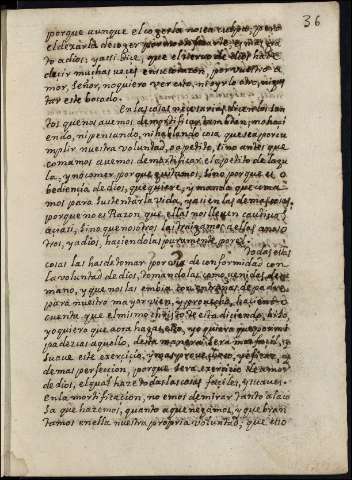 36
porque aunque el cogerla no sea culpa, pero
el dexarla de coger por mortificarte es mas grato
a dios, y assi dice, que el siervo de Dios ha de
decir muchas veces en su coraçon, por vuestro a
mor, Señor, no quiero ver esto, ni oyr lo otro, ni gus
tar este bocado.
En las cosas necesarias de entre las
tos que nos avemos de mortificar tambien, no haci
endo, ni pensando, ni hablando cosa que sea por cu
mplir nuestra voluntad, o apetito, sino antes que
comamos avemos de mortificar el apetito de la gu
la, y no comer porque gustamos, sino porque es o
bediencia de dios, que quiere, y manda que coma
mos para sustentar la vida, y assi en las demas cosas,
porque no es Razon que ellas nos lleven cautivos
a si, sino que nosotros las traigamos a ellas a noso
tros, y a dios, haciendolas puramente por el.
Todas estas
cosas las has de tomar por via de conformidad con
la voluntad de dios, tomandolas como venidas de su
mano, y que nos las embia con entrañas de padre
para nuestro mayor vien, y provecho, haciendo
cuenta que el mismo christo te esta diciendo, hijo,
yo quiero que aora hagas esto, yo quiero que
padezcas aquello, desta manera sera mas facil, y
suave este exercicio, y mas provechoso, y eficaz, y
de mas perfeccion, porque sera exercicio de amor
de dios, el qual haze todas las cosas faciles, y suaves.
En la mortificacion, no emos de mirar tanto a la co
sa que hazemos, quanto a que negamos, y quebran
tamos en ella nuestra propria voluntad, que esto